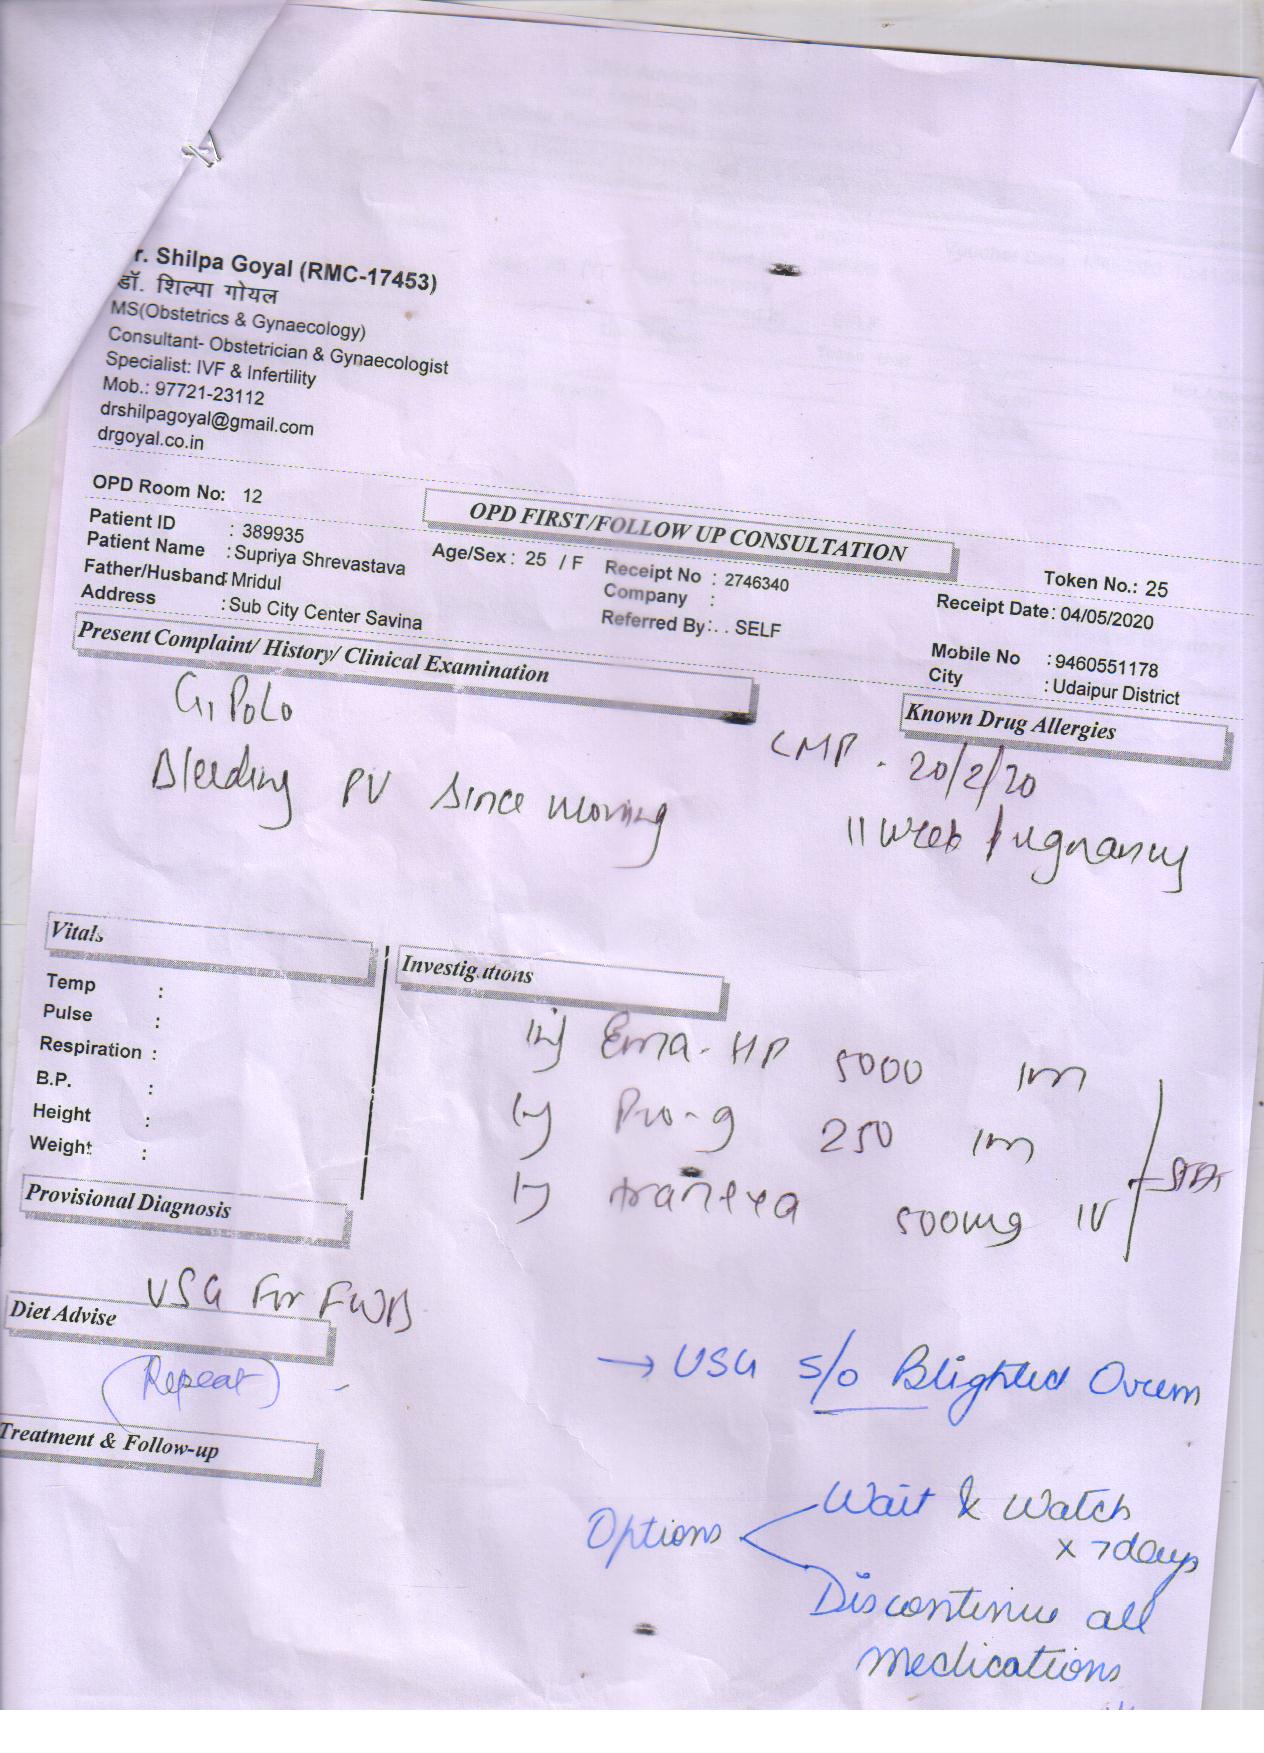 r. Shilpa Goyal (RMC-17453)
डॉ. शिल्पा गोयल
MS(Obstetrics & Gynaecology)
Consultant- Obstetrician & Gynaecologist
Specialist: IVF & Infertility
Mob.: 97721-23112
drshilpagoyal@gmail.com
drgoyal.co.in
OPD Room No: 12
OPD FIRST/FOLLOW UP CONSULTATION
Token No.: 25
Patient ID : 389935
Patient Name : Supriya Shrevastava
Age/Sex : 25 / F
Receipt No : 2746340
Receipt Date: 04/05/2020
Father/Husband: Mridul
Company :
Address : Sub City Center Savina
Referred By: . . SELF
Mobile No : 9460551178
City : Udaipur District
Present Complaint/ History/ Clinical Examination
Known Drug Allergies
G1P0L0
LMP . 20/2/20
Bleeding PV since morning
11 week pregnancy
Vitals
Investigations
Temp :
Pulse :
Respiration :
B.P. :
Height :
Weight :
Inj Ema-HP 5000 IM
Pro-g 250 IM
tranexa 500mg IV
Provisional Diagnosis
USG For FWB
Diet Advise
(Repeat)
→ USG s/o Blighted Ovum
Treatment & Follow-up
Options
Wait & Watch
x 7 days
Discontinue all
medications